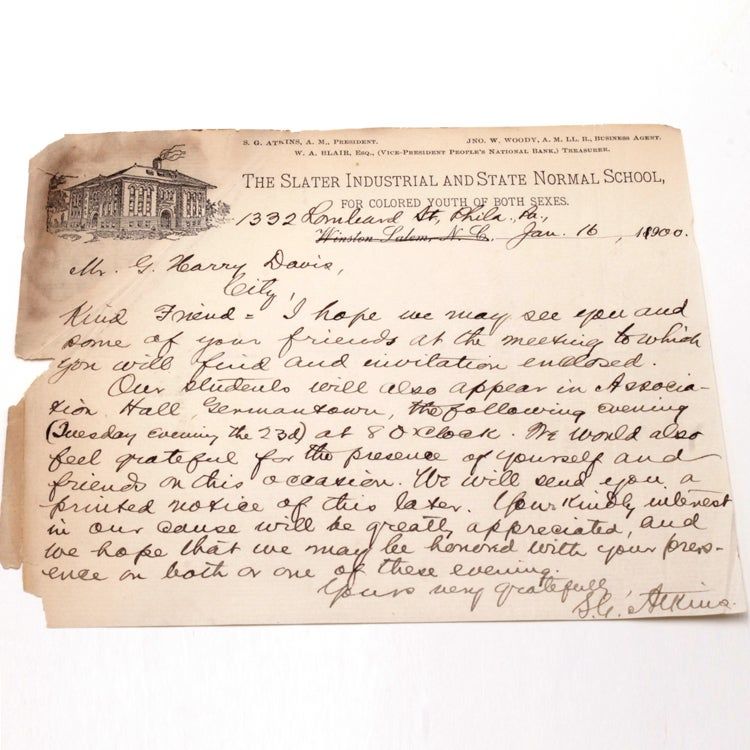 S. G. ATKINS, A. M., PRESIDENT. JNO. W. WOODY, A. M. LL. B., BUSINESS AGENT.
W. A. BLAIR, ESQ., (VICE-PRESIDENT PEOPLE'S NATIONAL BANK,) TREASURER.
THE SLATER INDUSTRIAL AND STATE NORMAL SCHOOL,
FOR COLORED YOUTH OF BOTH SEXES.
1332 Lombard St, Phila., Pa.,
Winston Salem, N. C., Jan. 16, 1900.
Mr. G. Harry Davis,
City,
Kind Friend = I hope we may see you and
some of your friends at the meeting to which
you will find and invitation enclosed.
Our students will also appear in Associa-
tion Hall, Germantown, the following evening
(Tuesday evening the 23d) at 8 O'Clock. We would also
feel grateful for the presence of yourself and
friends on this occasion. We will send you a
printed notice of this later. Your kindly interest
in our cause will be greatly appreciated, and
we hope that we may be honored with your pres-
ence on both or one of these evening.
Yours very gratefully,
S. G. Atkins.